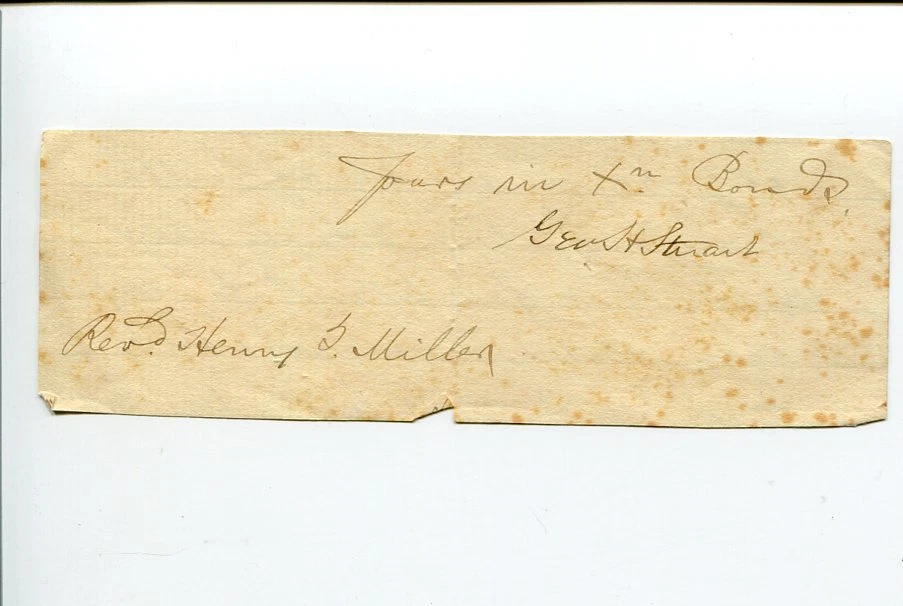 Yours in Xn Bonds,
Geo H Stuart
Revd. Henry S. Miller